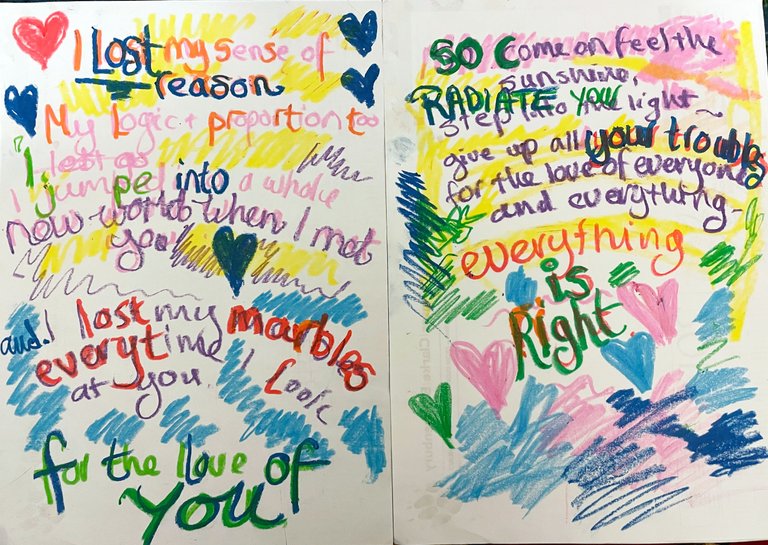 I Lost my sense of
reason
My Logic + proportion too
I let go
I jumped into a whole
now world when I met
you
and. I lost my marbles
everytime I Look
at you
for the love of
You
SO Come on feel the
sunshine,
RADIATE YOU
step into the light ~
give up all your troubles
for the love of everyone
and everything -
everything
is
Right